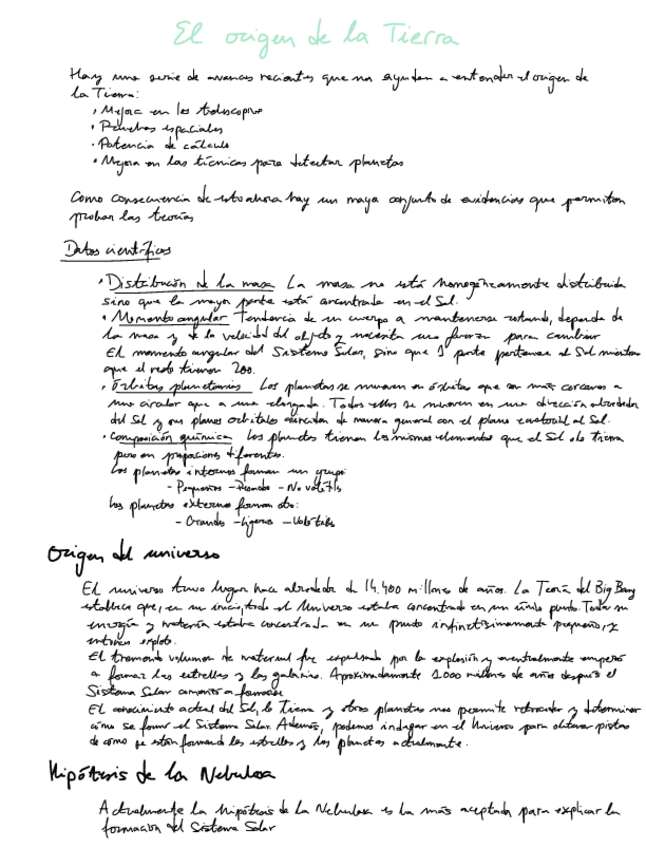 El origen de la Tierra
Hay una serie de avances recientes que nos ayudan a entender el origen de
la Tierra:
• Mejora en los telescopios
• Pruebas espaciales
• Potencia de cálculo
• Mejora en las técnicas para detectar planetas
Como consecuencia de esto ahora hay un mayor conjunto de evidencias que permiten
probar las teorías
Datos científicos
• Distribución de la masa La masa no está homogéneamente distribuida
sino que la mayor parte está en el Sol.
• Momento angular Tendencia de un cuerpo a mantenerse rotando, depende de
la masa y de la velocidad del objeto y necesita una fuerza para cambiar
El momento angular del Sistema Solar, sino que 1 parte pertenece al Sol mientras
que el resto tienen 200.
• Órbitas planetarias Los planetas se mueven en órbitas que son más cercanas a
una circular que a una elongada. Todos ellos se mueven en una dirección alrededor
del Sol y sus planos orbitales coinciden de manera general con el plano del Sol.
• Composición química Los planetas tienen los mismos elementos que el Sol o la Tierra
pero en proporciones diferentes.
Los planetas internos forman un grupo:
- Pequeños - - No volátiles
Los planetas externos forman otro:
- Grandes - Ligeros - Volátiles
Origen del universo
El universo tuvo lugar hace alrededor de 14.400 millones de años. La Teoría del Big Bang
establece que, en su inicio, todo el Universo estaba concentrado en un único punto. Toda su
energía y materia estaba concentrada en un punto infinitesimamente pequeño, y
entonces explotó.
El tremendo volumen de material fue expulsado por la explosión y eventualmente empezó
a formar las estrellas y las galaxias. Aproximadamente 1000 millones de años después el
Sistema Solar comenzó a formarse
El conocimiento actual del Sol, la Tierra y otros planetas nos permite retroceder y determinar
cómo se formó el Sistema Solar. Además, podemos indagar en el Universo para obtener pistas
de cómo se están formando las estrellas y los planetas actualmente.
Hipótesis de la Nebulosa
Actualmente la hipótesis de la Nebulosa es la más aceptada para explicar la
formación del Sistema Solar